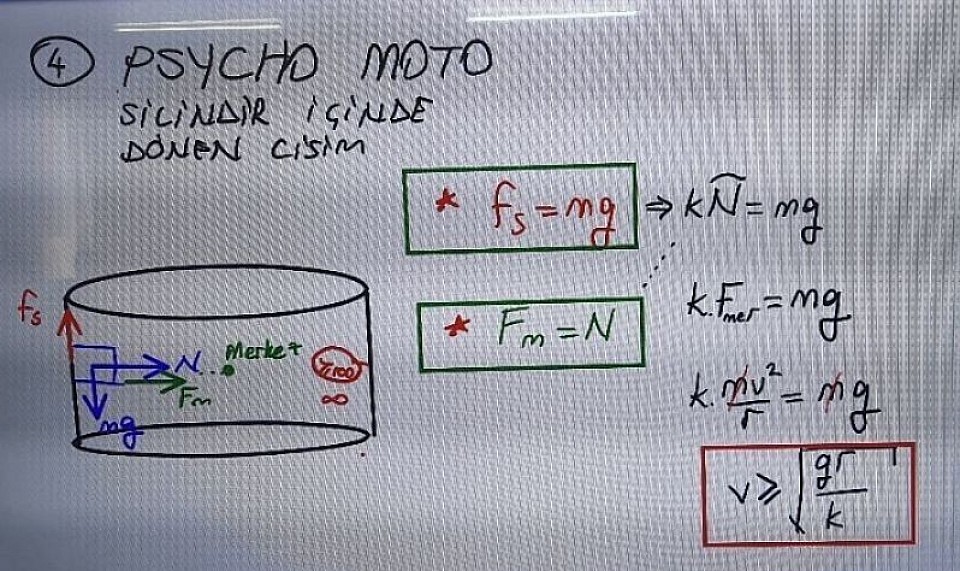 ④ PSYCHO MOTO
SİLİNDİR İÇİNDE
DÖNEN CİSİM
* fs = mg ⇒ kN = mg
* Fm = N
k.Fmer = mg
k.mv²/r = mg
v ≥ √(gr/k)
fs
N
Merkez
Fm
mg
∞